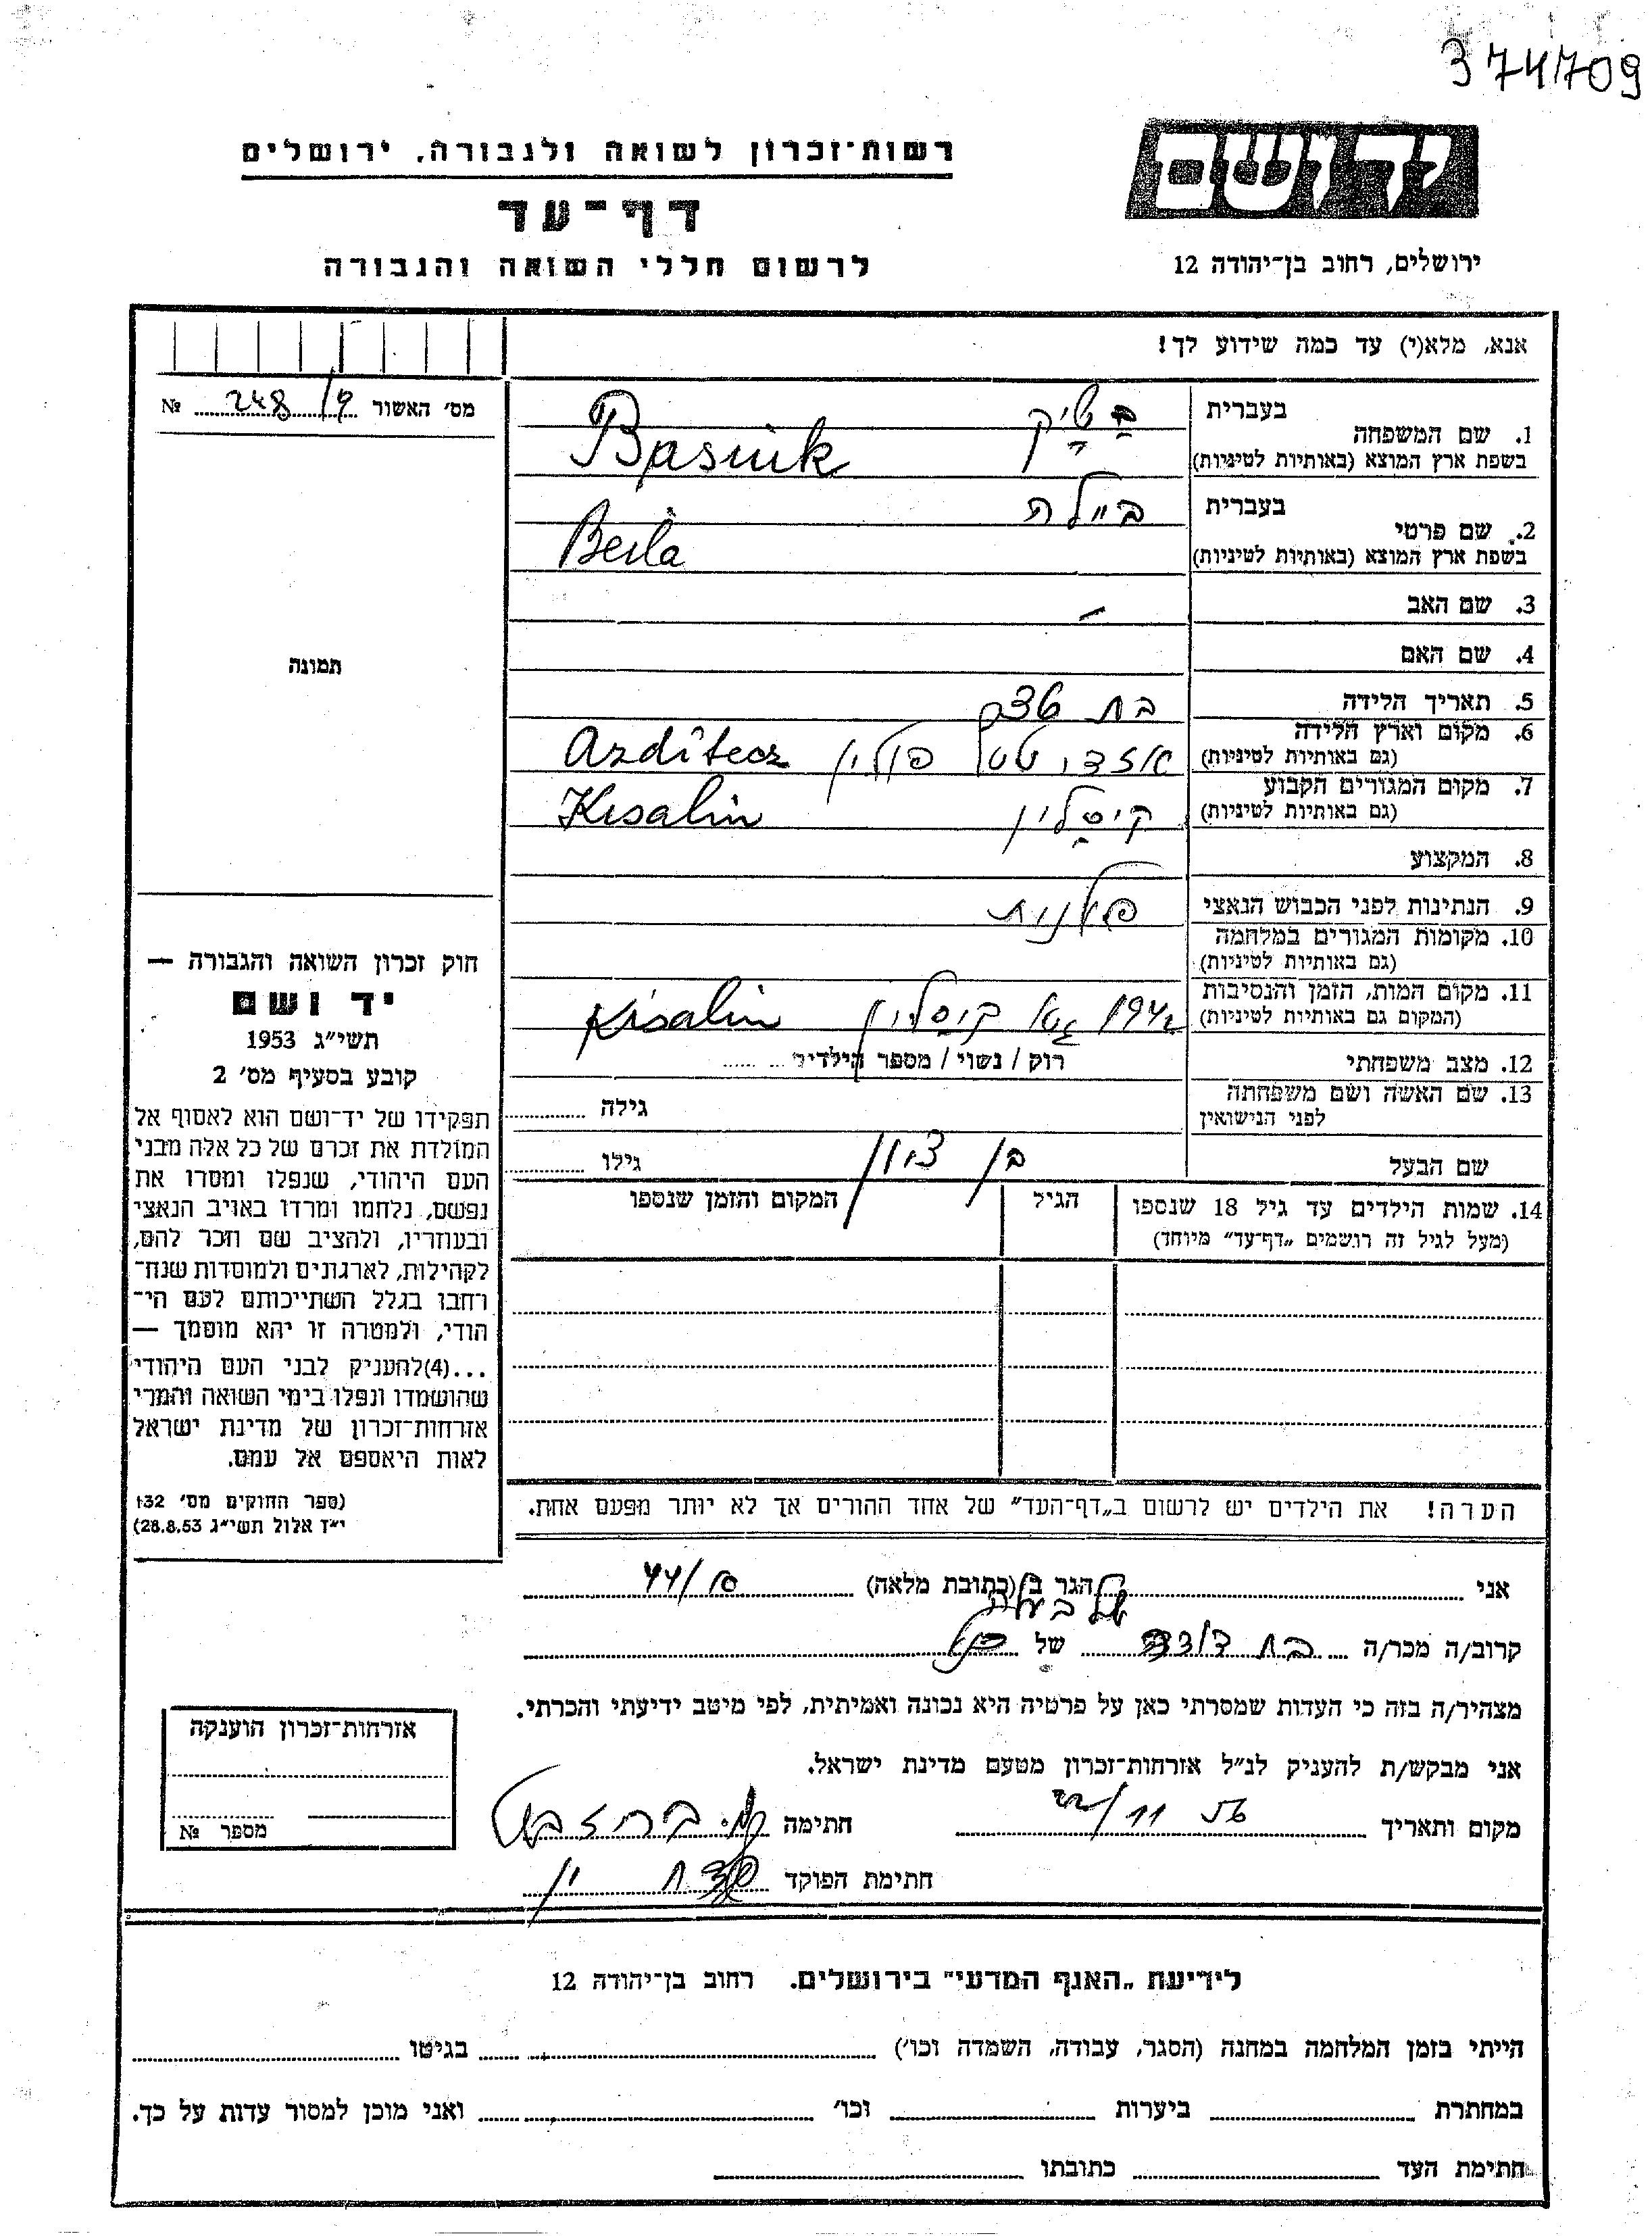 374709
יד ושם
רשות־זכרון לשואה ולגבורה, ירושלים
דף־עד
ירושלים, רחוב בן־יהודה 12
לרשום חללי השואה והגבורה
אנא, מלא(י) עד כמה שידוע לך!
מס׳ האשור 248/9 №
תמונה
1. שם המשפחה
בעברית
בשפת ארץ המוצא (באותיות לטיניות)
Basuik
2. שם פרטי
בעברית ביילה
בשפת ארץ המוצא (באותיות לטיניות) Beila
3. שם האב –
4. שם האם
5. תאריך הלידה בת
6. מקום וארץ הלידה
(גם באותיות לטיניות) פולין
7. מקום המגורים הקבוע
(גם באותיות לטיניות) קיסלין Kisalin
8. המקצוע
9. הנתינות לפני הכבוש הנאצי פולנית
10. מקומות המגורים במלחמה
(גם באותיות לטיניות)
11. מקום המות, הזמן והנסיבות
(המקום גם באותיות לטיניות) 1942 גטו קיסלין Kisalin
12. מצב משפחתי רוק / נשוי / מספר הילדים
13. שם האשה ושם משפחתה
לפני הנישואין גילה
שם הבעל בן ציון גילו
14. שמות הילדים עד גיל 18 שנספו הגיל המקום והזמן שנספו
(מעל לגיל זה רושמים „דף־עד״ מיוחד)
הערה! את הילדים יש לרשום ב„דף־העד״ של אחד ההורים אך לא יותר מפעם אחת.
חוק זכרון השואה והגבורה —
יד ושם
תשי״ג 1953
קובע בסעיף מס׳ 2
תפקידו של יד־ושם הוא לאסוף אל
המולדת את זכרם של כל אלה מבני
העם היהודי, שנפלו ומסרו את
נפשם, נלחמו ומרדו באויב הנאצי
ובעוזריו, ולהציב שם וזכר להם,
לקהילות, לארגונים ולמוסדות שנח־
רחבו בגלל השתייכותם לעם הי־
הודי, ולמטרה זו יהא מוסמך —
...(4)להעניק לבני העם היהודי
שהושמדו ונפלו בימי השואה והמרי
אזרחות־זכרון של מדינת ישראל
לאות היאספם אל עמם.
(ספר החוקים מס׳ 132
י״ז אלול תשי״ג 28.8.53)
אני הגר ב (כתובת מלאה)
קרוב/ה מכר/ה בת דודה של
מצהיר/ה בזה כי העדות שמסרתי כאן על פרטיה היא נכונה ואמיתית, לפי מיטב ידיעתי והכרתי.
אני מבקש/ת להעניק לנ״ל אזרחות־זכרון מטעם מדינת ישראל.
מקום ותאריך חתימה
חתימת הפוקד
אזרחות־זכרון הוענקה
מספר №
לידיעת „האגף המדעי״ בירושלים. רחוב בן־יהודה 12
הייתי בזמן המלחמה במחנה (הסגר, עבודה, השמדה וכו׳) בגיטו
במחתרת ביערות וכו׳ ואני מוכן למסור עדות על כך.
חתימת העד כתובתו